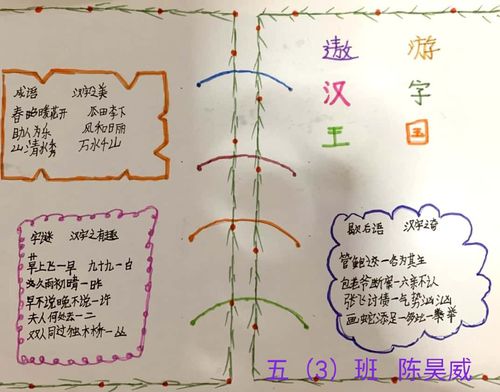 成语 汉字之美
瓜田李下
助人为乐 风和日丽
山清水秀 万水千山
字谜 汉字之有趣
早上飞一早 九十九一白
久雨初晴一昨
早不说晚不说一许
夫人何处去一二
双人同过独木桥一丛
遨 游
汉 字
王 国
歇后语 汉字之奇
管鲍之交一各为其主
包老爷断案一六亲不认
张飞讨债一气势汹汹
画蛇添足一多此一举
五（3）班 陈昊威